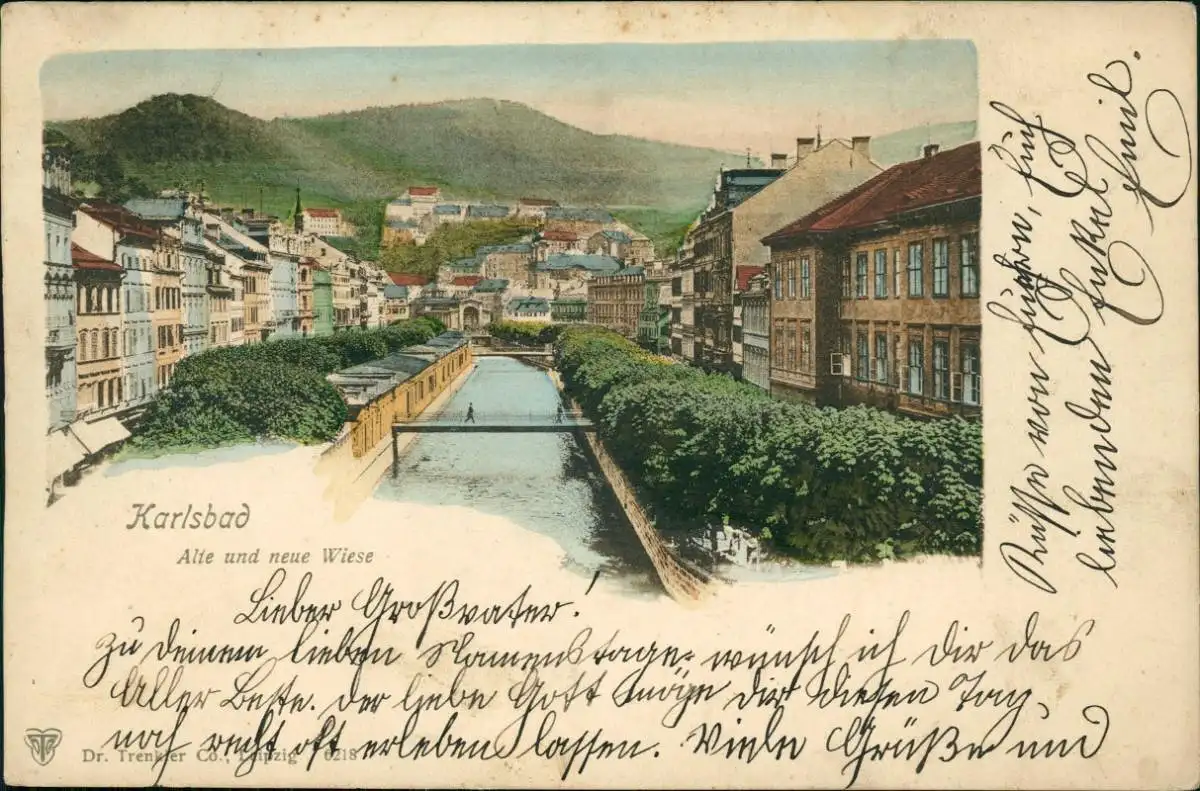 Karlsbad
Alte und neue Wiese
Lieber Großvater!
Zu deinem lieben Namenstage wünsch ich Dir das
Aller Beste. Der liebe Gott möge dir diesen Tag
noch recht oft erleben lassen. Viele Grüße und
Dr. Trenkler Co., Leipzig 6218
Küsse von Euch
liebenden Enkel Emil.